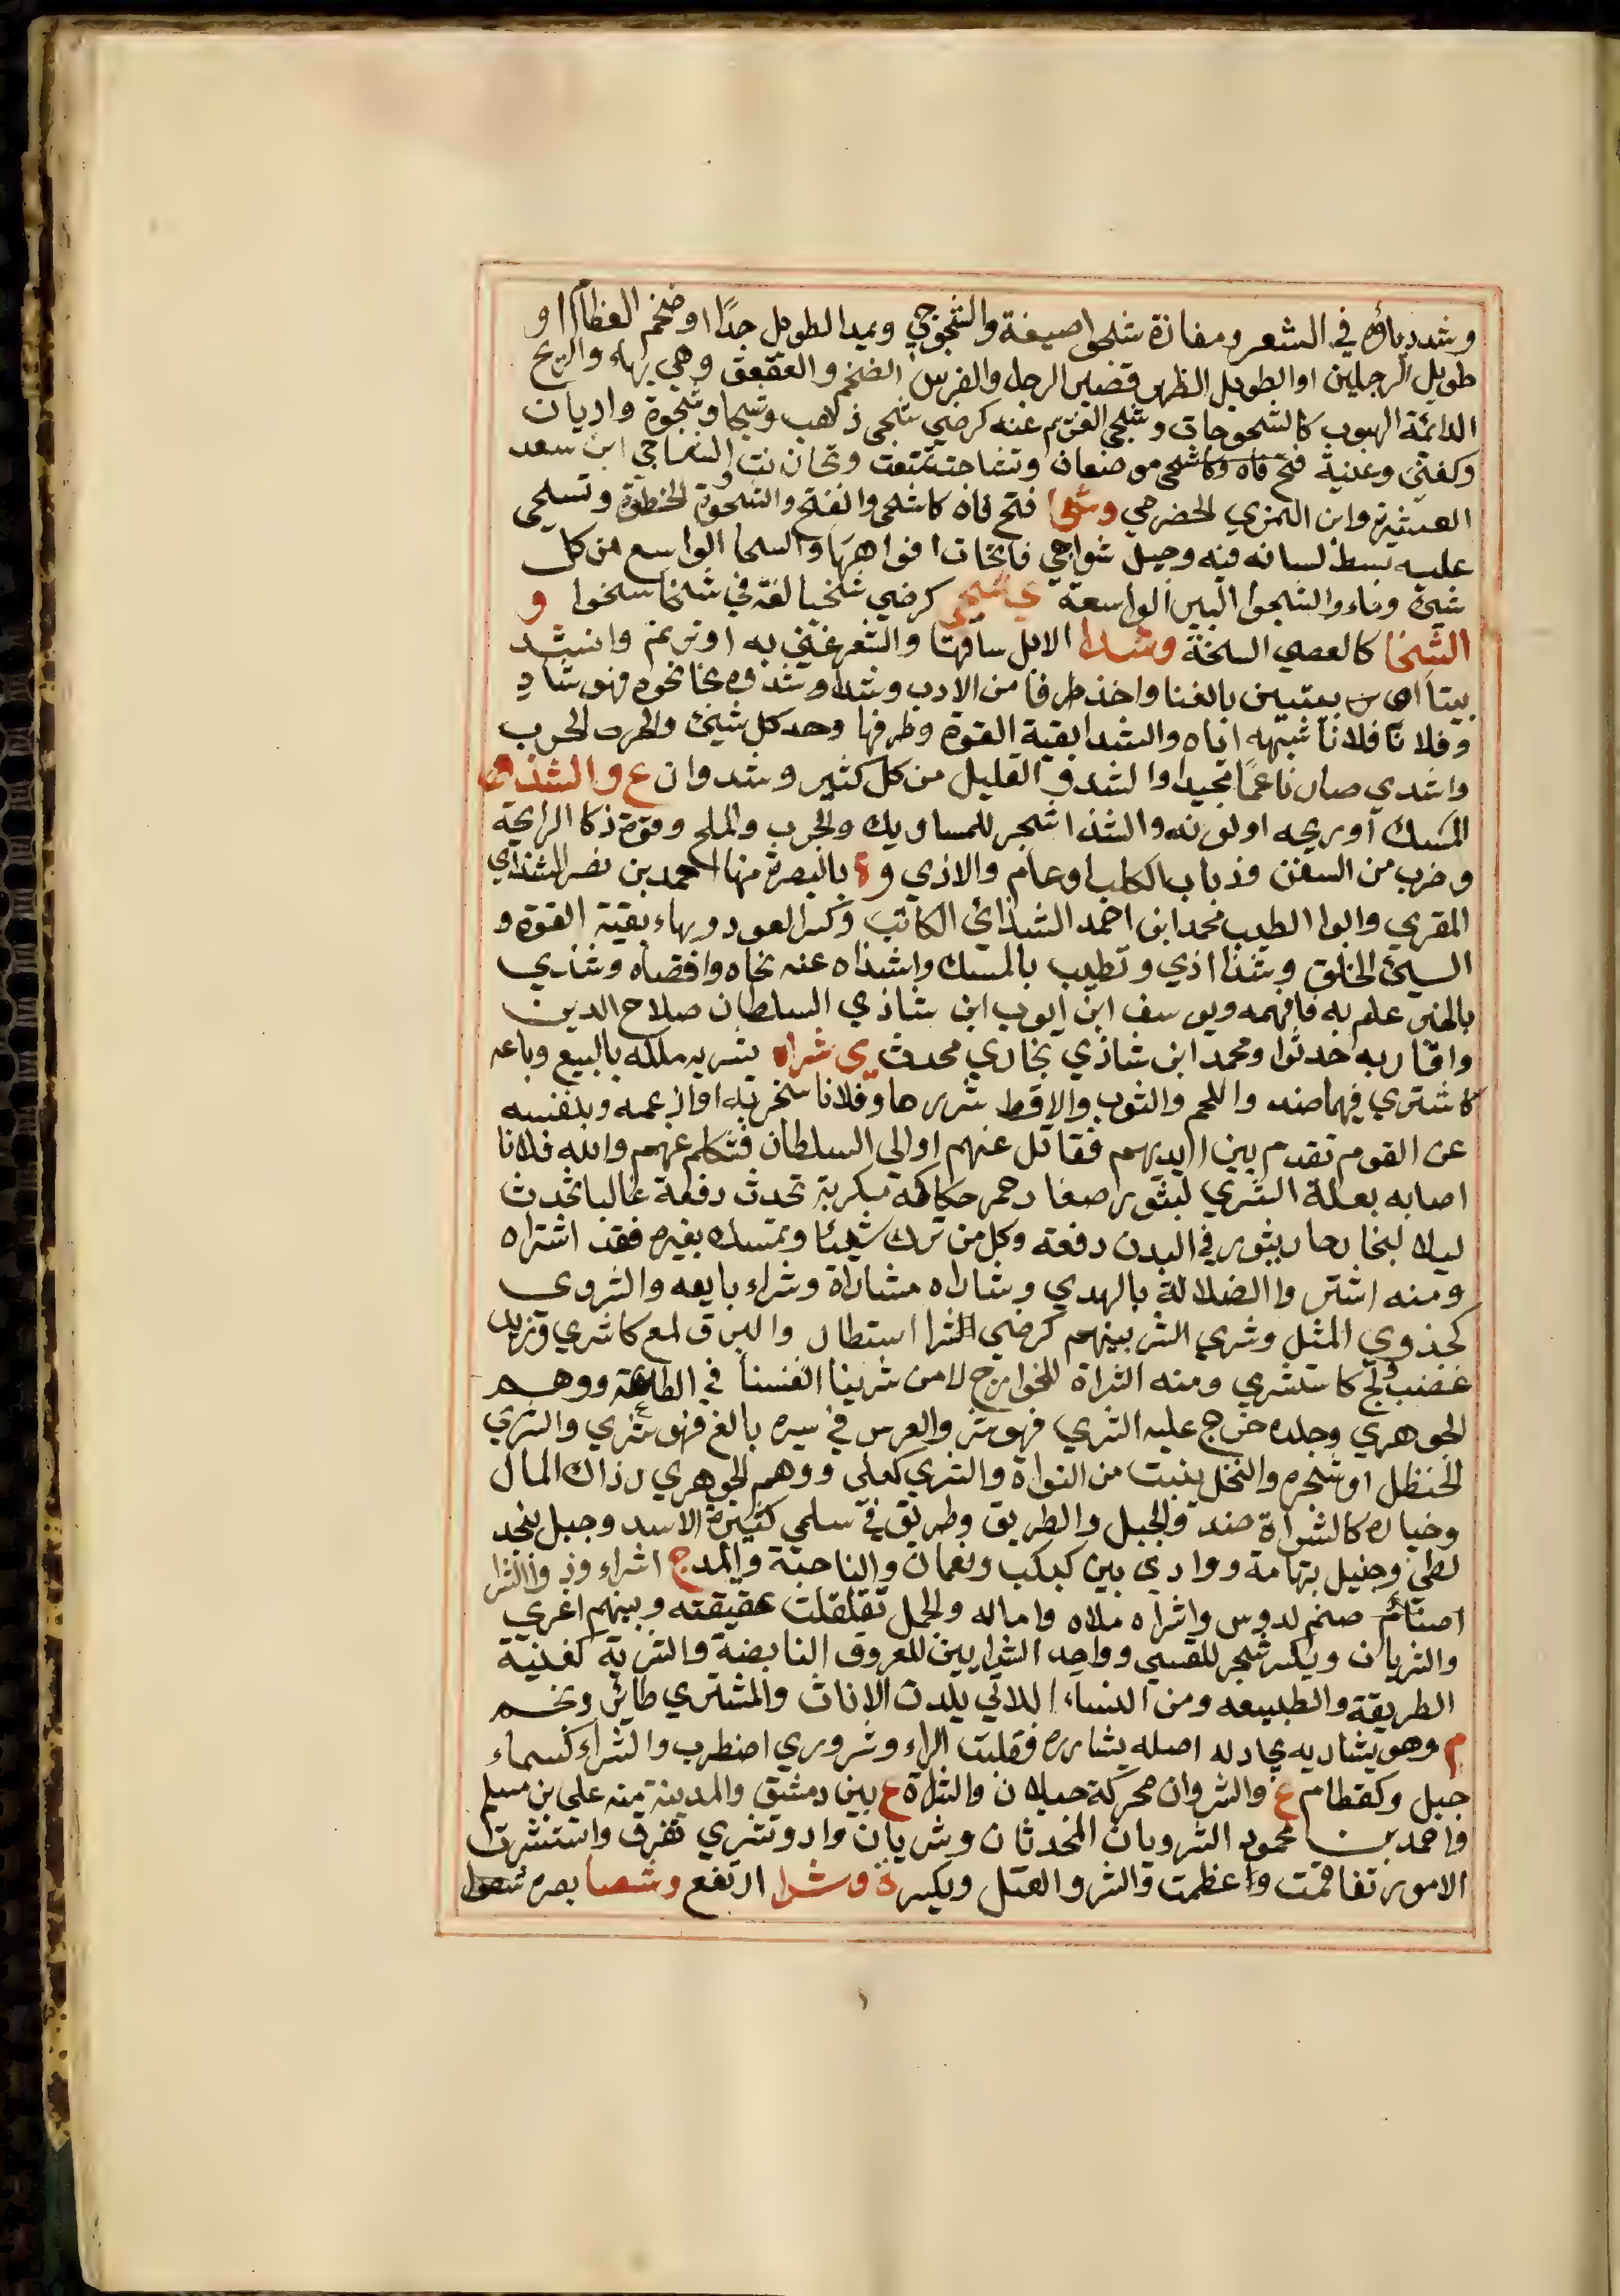 وشدد ياؤه في الشعر ومفازة شجوا صيفة والشجوجي ويمد الطويل جدًا او ضخم العظام او
طويل الرجلين او الطويل الظهر قصير الرجل والفرس الضخم والعقعق وهي بهاء والريح
الدائمة الهبوب كالشجوجات وشجي الغريم عنه كرضي شجى ذهب وشجا وشجوة واديان
وكفتى وغنية فتح فاه موضعان وتشاجت تمنعت وتحازنت الشاجي ابن سعد
العشيرة وابن النمري الحضرمي وشحا فتح فاه كاشحى وانفتح والشحوة الخطوة وتشحى
عليه بسط لسانه فيه وخيل شواحي فاتحات افواهها والسحا الواسع من كل
شيئ وماء والشحوا البير الواسعة ي شحى كرضي شحيا لغة في شحا شحوا و
الشخا كالعصى السبخة وشدا الابل ساقها والشعر غنى به او ترنم وانشد
بيتا او بيتين بالغنا واخذ طرفا من الادب وشدا وشدوه نحا نحوه فهو شادٍ
وفلانا فلانا شبهه اياه والشدا بقية القوة وطرفها وحد كل شيئ والحر والجرب
واشدى صار ناعمًا مجيدا والشدو القليل من كل كثير وشدوان ع والشذو
المسك او ريحه او لونه والشذا شجر للمساويك والجرب والملح وقوة ذكا الرايحة
وضرب من السفن وذباب الكلب او عام والاذي وة بالبصرة منها احمد بن نصر الشذائي
المقري وابوا الطيب محمد ابن احمد الشذائي الكاتب وكسر العود وبهاء بقية القوة و
السيئ الخلق وشذا اذي وتطيب بالمسك واشذاه عنه نحاه واقصاه وشذي
بالخبر علم به فافهمه ويوسف ابن ايوب ابن شاذي السلطان صلاح الدين
واقاربه حدثوا ومحمد ابن شاذي بخاري محدث ي شراه يشريه ملكه بالبيع وباعه
كاشترى فيهما ضد واللحم والثوب والاقط شررها وفلانا سخر به او ارغمه وبنفسه
عن القوم تقدم بين ايديهم فقاتل عنهم او الى السلطان فتكلم عنهم والله فلانا
اصابه بعلة الشرى لبثور صغار حمر حكاكة مكربة تحدث دفعة غالبا تحدث
ليلا لبخار حار يثور في البدن دفعة وكل من ترك شيئا وتمسك بغيره فقد اشتراه
ومنه اشتروا الضلالة بالهدي وشاراه مشاراة وشراء بايعه والشروى
كجذوي المثل وشري الشر بينهم كرضي الشرا استطار والبرق لمع كاشرى وزيد
غضب ولج كاستشرى ومنه الشراة للخوارج لا من شرينا انفسنا في الطاعة ووهم
الجوهري وجلده خرج عليه الشري فهو شر والفرس في سيره بالغ فهو شري والشري
الحنظل او شجره والنخل ينبت من النواة والشري كعلى ووهم الجوهري رذال المال
وخياره كالشراة ضد والجبل والطريق وطريق في سلمى كثيرة الاسد وجبل بنجد
لطئ وجبل بتهامة ووادي بين كبكب ونعمان والناحية والمدج اشراء وذوا الشرا
صنم لدوس واشراه ملاه واماله والجمل تفلقلت عقيقته وبينهم اغري
والشريان ويكسر شجر للقسي وواحد الشرايين للعروق النابضة والشرية كغنية
الطريقة والطبيعه ومن النساء اللاتي يلدن الاناث والمشتري طائر ونجم
م وهو يشاريه يجادله اصله يشارره فقلبت الراء وشروري اضطرب والشراء كسماء
جبل وكقطام ع والشروان محركة جبلان والشراة ع بين دمشق والمدينة منه علي بن مسلم
واحمد بن محمود الشرويان المحدثان وشريان واد وتشرى تفرق واستشرت
الامور تفاقمت واعظمت والشرو العسل ويكسر ة وشرا ارتفع وشصا بصره شصوا